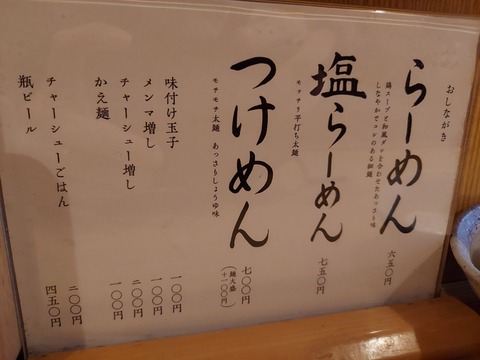 おしながき
らーめん 六五〇円
鶏スープと和風ダシを合わせたあっさり味
しなやかでコシのある細麺
塩らーめん 七五〇円
モッチリ平打ち太麺
つけめん 七〇〇円
(麺大盛+一〇〇円)
モチモチ太麺 あっさりしょうゆ味
味付け玉子 一〇〇円
メンマ増し 一〇〇円
チャーシュー増し 二〇〇円
かえ麺 一〇〇円
チャーシューごはん 二〇〇円
瓶ビール 四五〇円